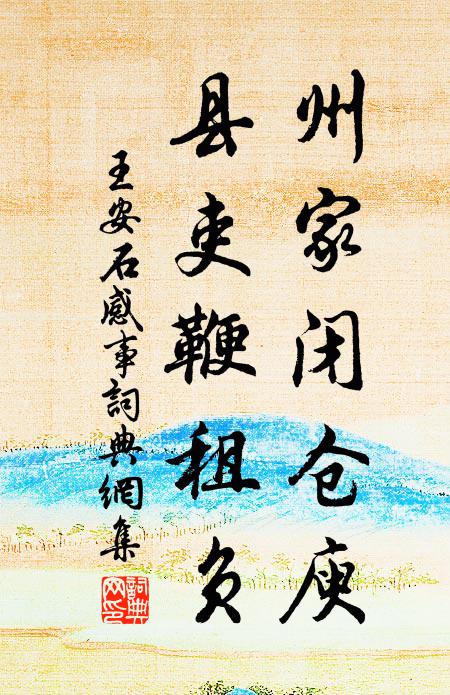 州家闭仓庾
县吏鞭租负
王安石感事詞典網集
詞典网印